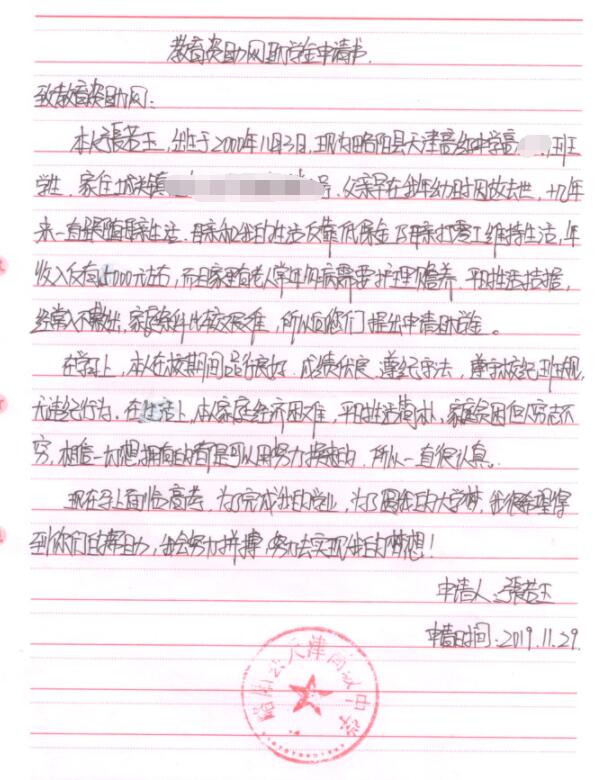 教育资助网助学金申请书
致教育资助网：
本人张若玉，出生于2000年11月3日，现为略阳县天津高级中学高 班
学生，家住城关镇 号。父亲早在我年幼时因故去世，十几年
来一直跟随母亲生活。母亲和我的生活仅靠低保金及母亲打零工维持生活，年
收入仅有15000元左右，而且家里有老人常年有病需要护理赡养，平时生活拮据，
经常入不敷出，家庭条件比较困难，所以向你们提出申请助学金。
在学习上，本人在校期间品行良好，成绩优良，遵纪守法，遵守校纪班规，
无违纪行为。在生活上，本人家庭经济困难，平时生活简朴，家庭贫困但人穷志不
穷，相信一切想拥有的都是可以用努力换来的，所以一直很认真。
现在马上面临高考，为了完成我的学业，为了圆我的大学梦，我很希望得
到你们的帮助，我会努力拼搏，努力去实现我的梦想！
申请人：张若玉
申请时间：2019.11.29
略阳县天津高级中学